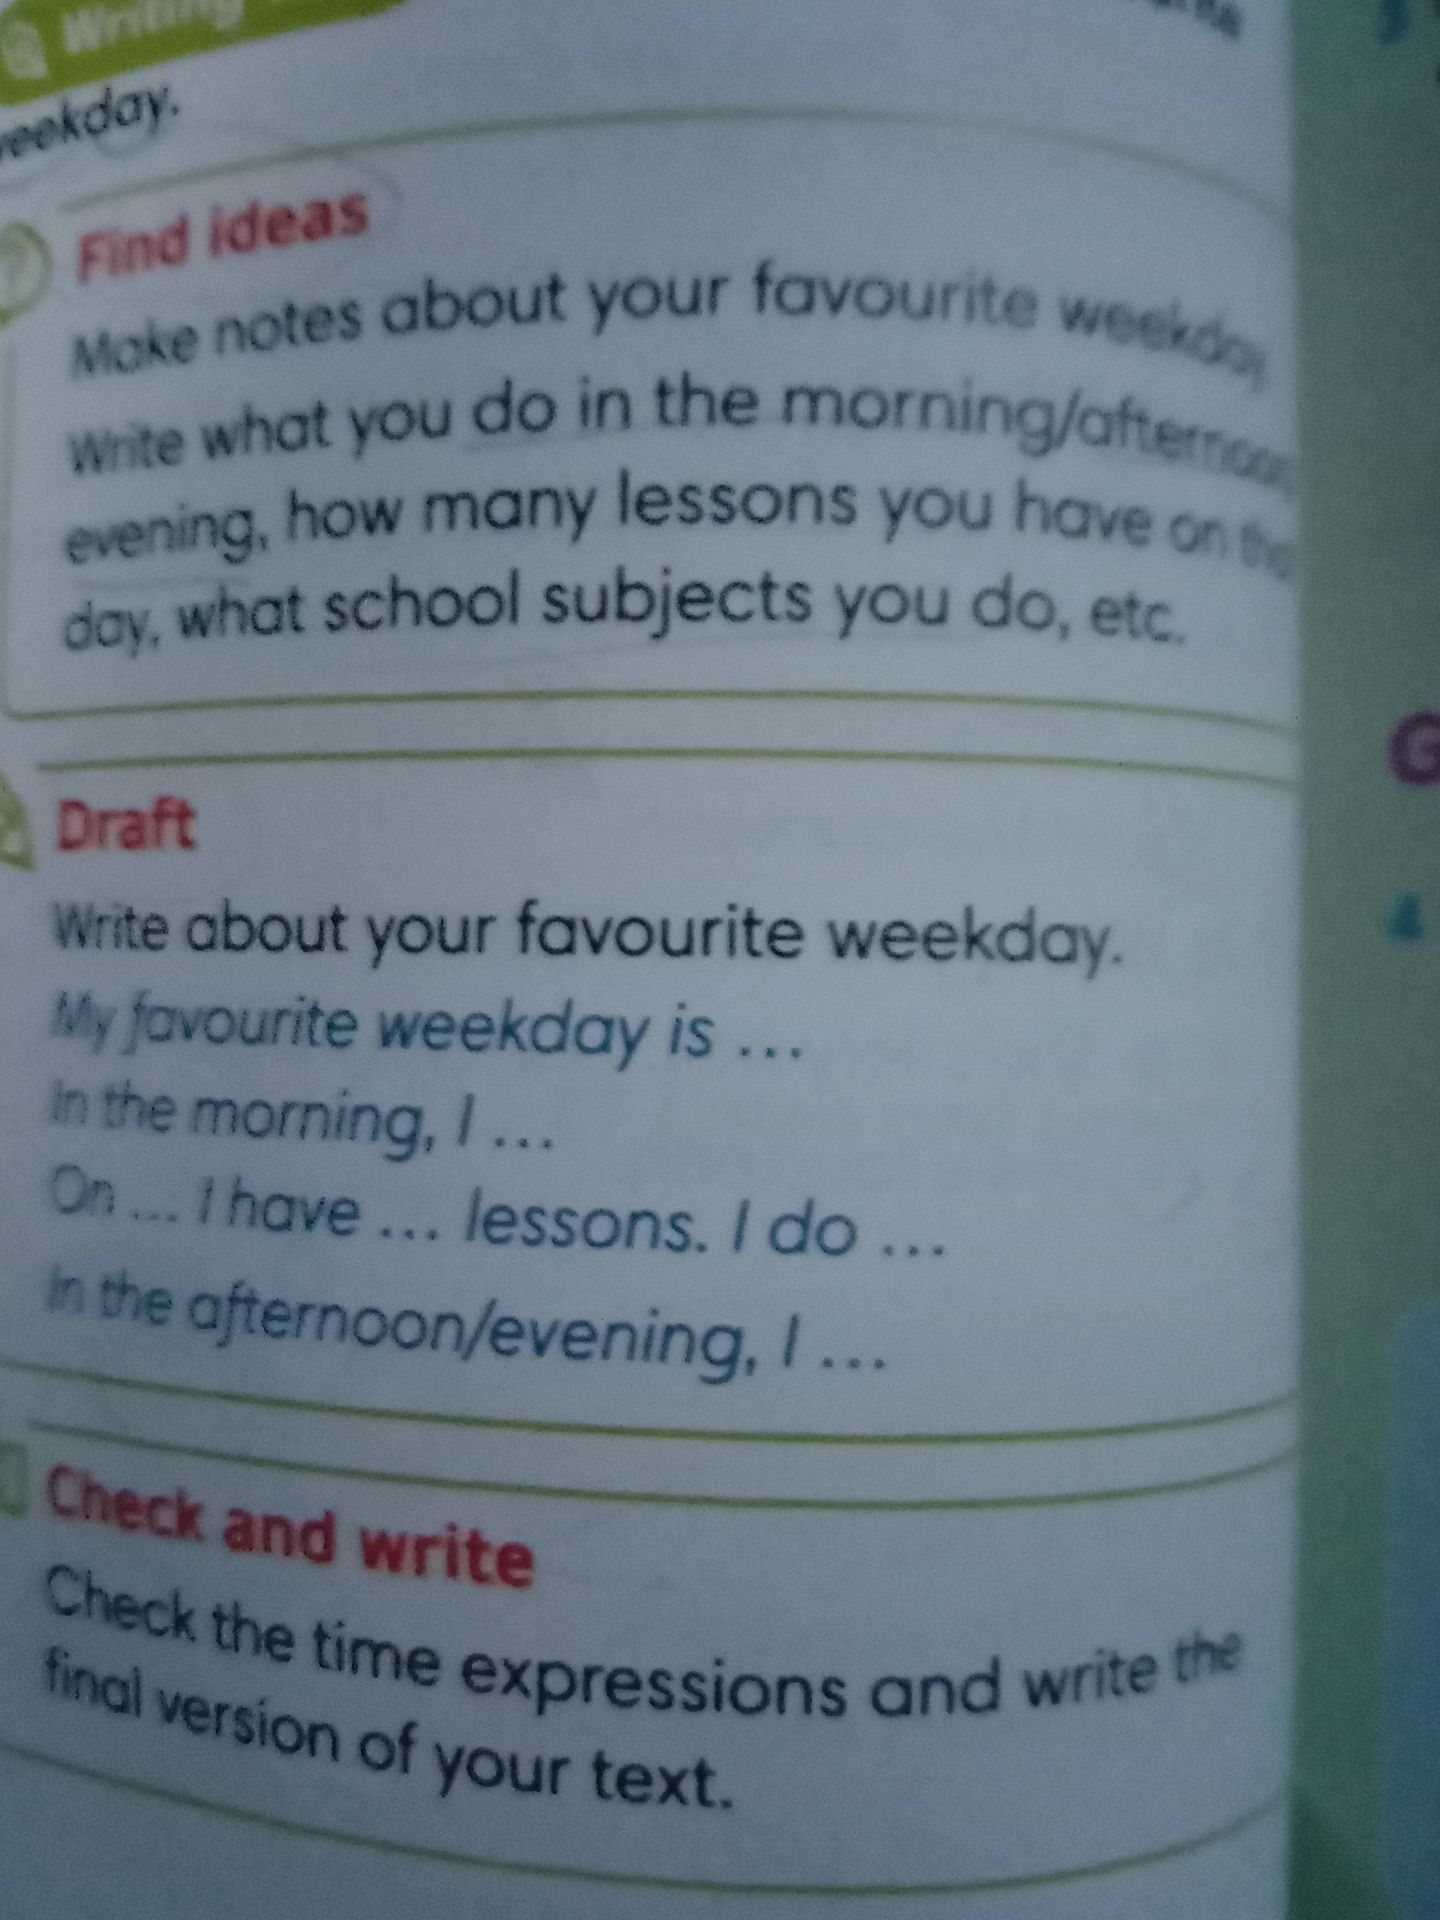 Writing
weekday.
Find ideas
Make notes about your favourite weekday.
Write what you do in the morning/afternoon/
evening, how many lessons you have on
day, what school subjects you do, etc.
Draft
Write about your favourite weekday.
My favourite weekday is ...
In the morning, I ...
On ... I have ... lessons. I do ...
In the afternoon/evening, I ...
Check and write
Check the time expressions and write the
final version of your text.
4